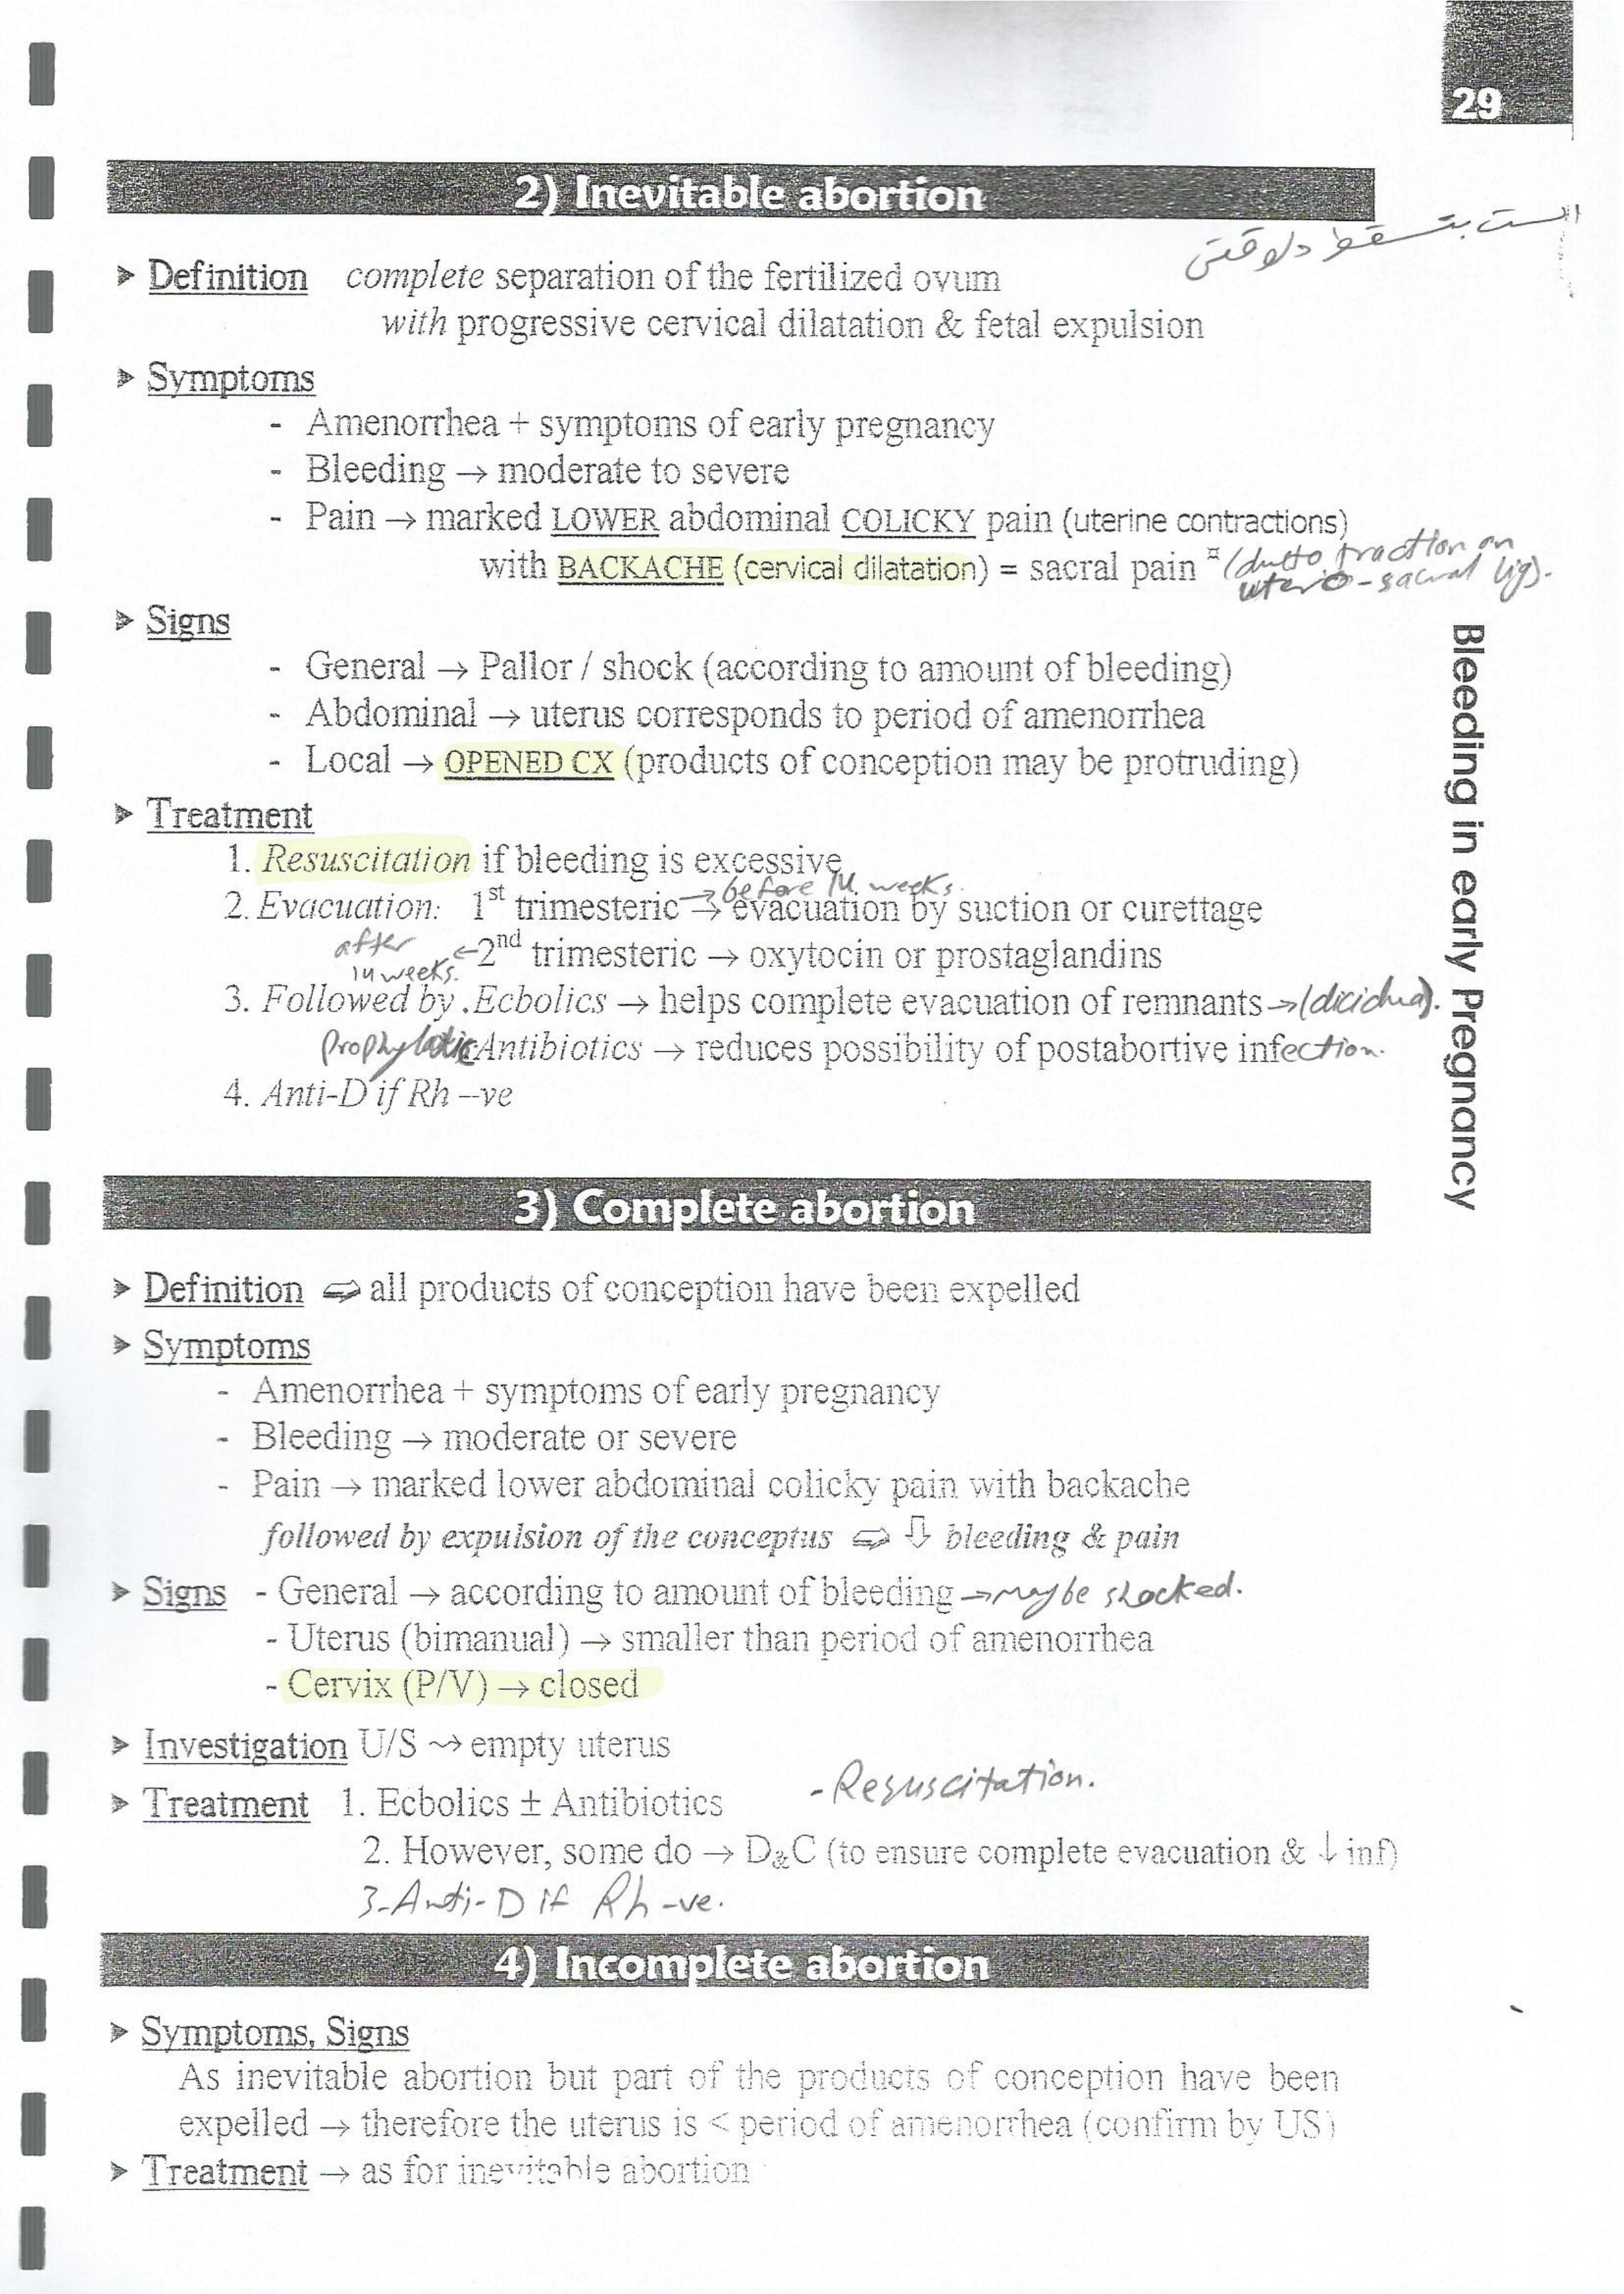 29
2) Inevitable abortion
الست بتسقط دلوقتى
➤ Definition complete separation of the fertilized ovum
with progressive cervical dilatation & fetal expulsion
➤ Symptoms
- Amenorrhea + symptoms of early pregnancy
- Bleeding → moderate to severe
- Pain → marked LOWER abdominal COLICKY pain (uterine contractions)
with BACKACHE (cervical dilatation) = sacral pain ¤ (dutto traction on
utero-sacral lig).
➤ Signs
- General → Pallor / shock (according to amount of bleeding)
- Abdominal → uterus corresponds to period of amenorrhea
- Local → OPENED CX (products of conception may be protruding)
➤ Treatment
1. Resuscitation if bleeding is excessive
→ before 14 weeks.
2. Evacuation: 1st trimesteric → evacuation by suction or curettage
after 14 weeks. ← 2nd trimesteric → oxytocin or prostaglandins
3. Followed by .Ecbolics → helps complete evacuation of remnants → (dicidua).
Prophylatic Antibiotics → reduces possibility of postabortive infection.
4. Anti-D if Rh –ve
Bleeding in early Pregnancy
3) Complete abortion
➤ Definition ⇨ all products of conception have been expelled
➤ Symptoms
- Amenorrhea + symptoms of early pregnancy
- Bleeding → moderate or severe
- Pain → marked lower abdominal colicky pain with backache
followed by expulsion of the conceptus ⇨ ⇩ bleeding & pain
➤ Signs - General → according to amount of bleeding → may be shocked.
- Uterus (bimanual) → smaller than period of amenorrhea
- Cervix (P/V) → closed
➤ Investigation U/S ⤳ empty uterus
- Resuscitation.
➤ Treatment 1. Ecbolics ± Antibiotics
2. However, some do → D&C (to ensure complete evacuation & ↓ inf)
3- Anti-D if Rh -ve.
4) Incomplete abortion
➤ Symptoms, Signs
As inevitable abortion but part of the products of conception have been
expelled → therefore the uterus is < period of amenorrhea (confirm by US)
➤ Treatment → as for inevitable abortion